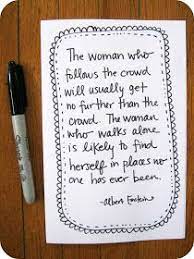 The woman who
follows the crowd
will usually get
no further than the
crowd. The woman
who walks alone
is likely to find
herself in places no
one has ever been.
-Albert Einstein